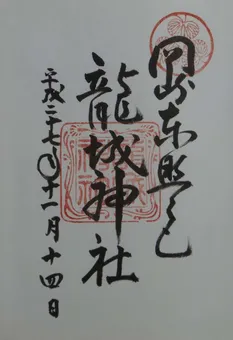 岡崎東照
龍城神社
平成二十七年十一月十四日